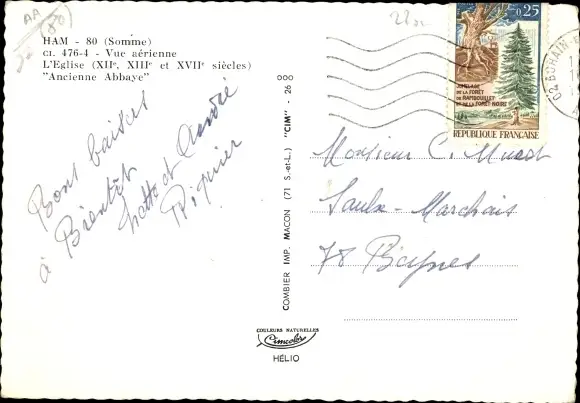 AA
(80)
HAM - 80 (Somme)
CI. 476-4 - Vue aérienne
L'Eglise (XIIe, XIIIe et XVIIe siècles)
"Ancienne Abbaye"
Bons baisers
à Bientôt
et André
COMBIER IMP. MACON (71 S.-et-L.) "CIM" - 26 000
COULEURS NATURELLES
Cimcolor
HÉLIO
0,25
JUMELAGE
DE LA FORÊT
DE RAMBOUILLET
ET DE LA FORÊT NOIRE
REPUBLIQUE FRANÇAISE
02 BOHAIN
Monsieur C.
Saulx-Marchais
78 Baynes